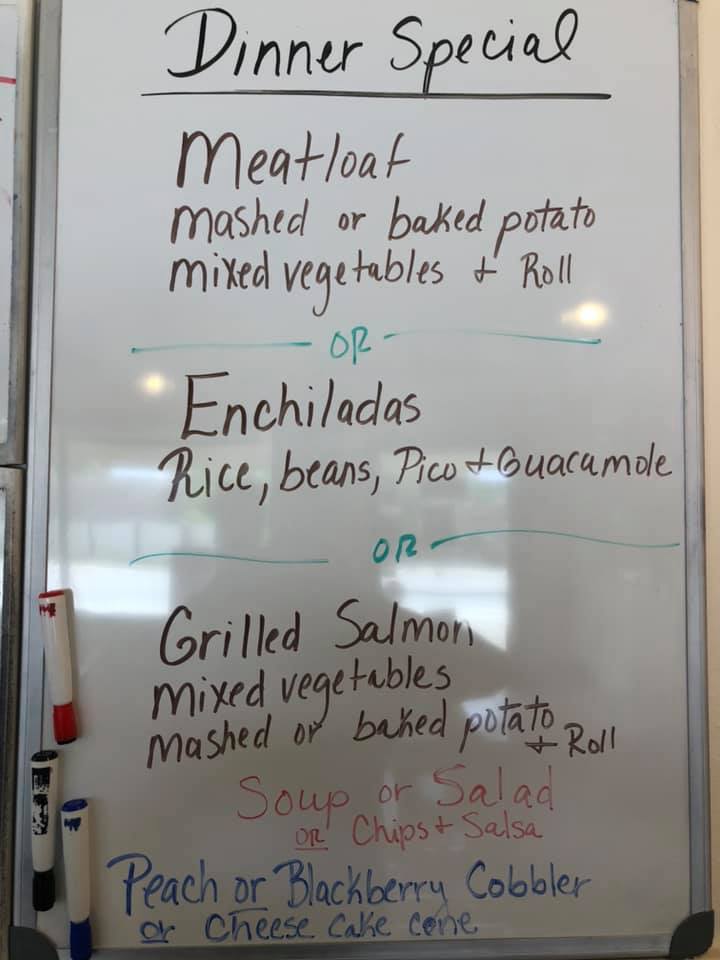 Dinner Special
Meatloaf
mashed or baked potato
mixed vegetables + Roll
OR
Enchiladas
Rice, beans, Pico + Guacamole
OR
Grilled Salmon
mixed vegetables
mashed or baked potato
+ Roll
Soup or Salad
OR Chips + Salsa
Peach or Blackberry Cobbler
or Cheese cake cone